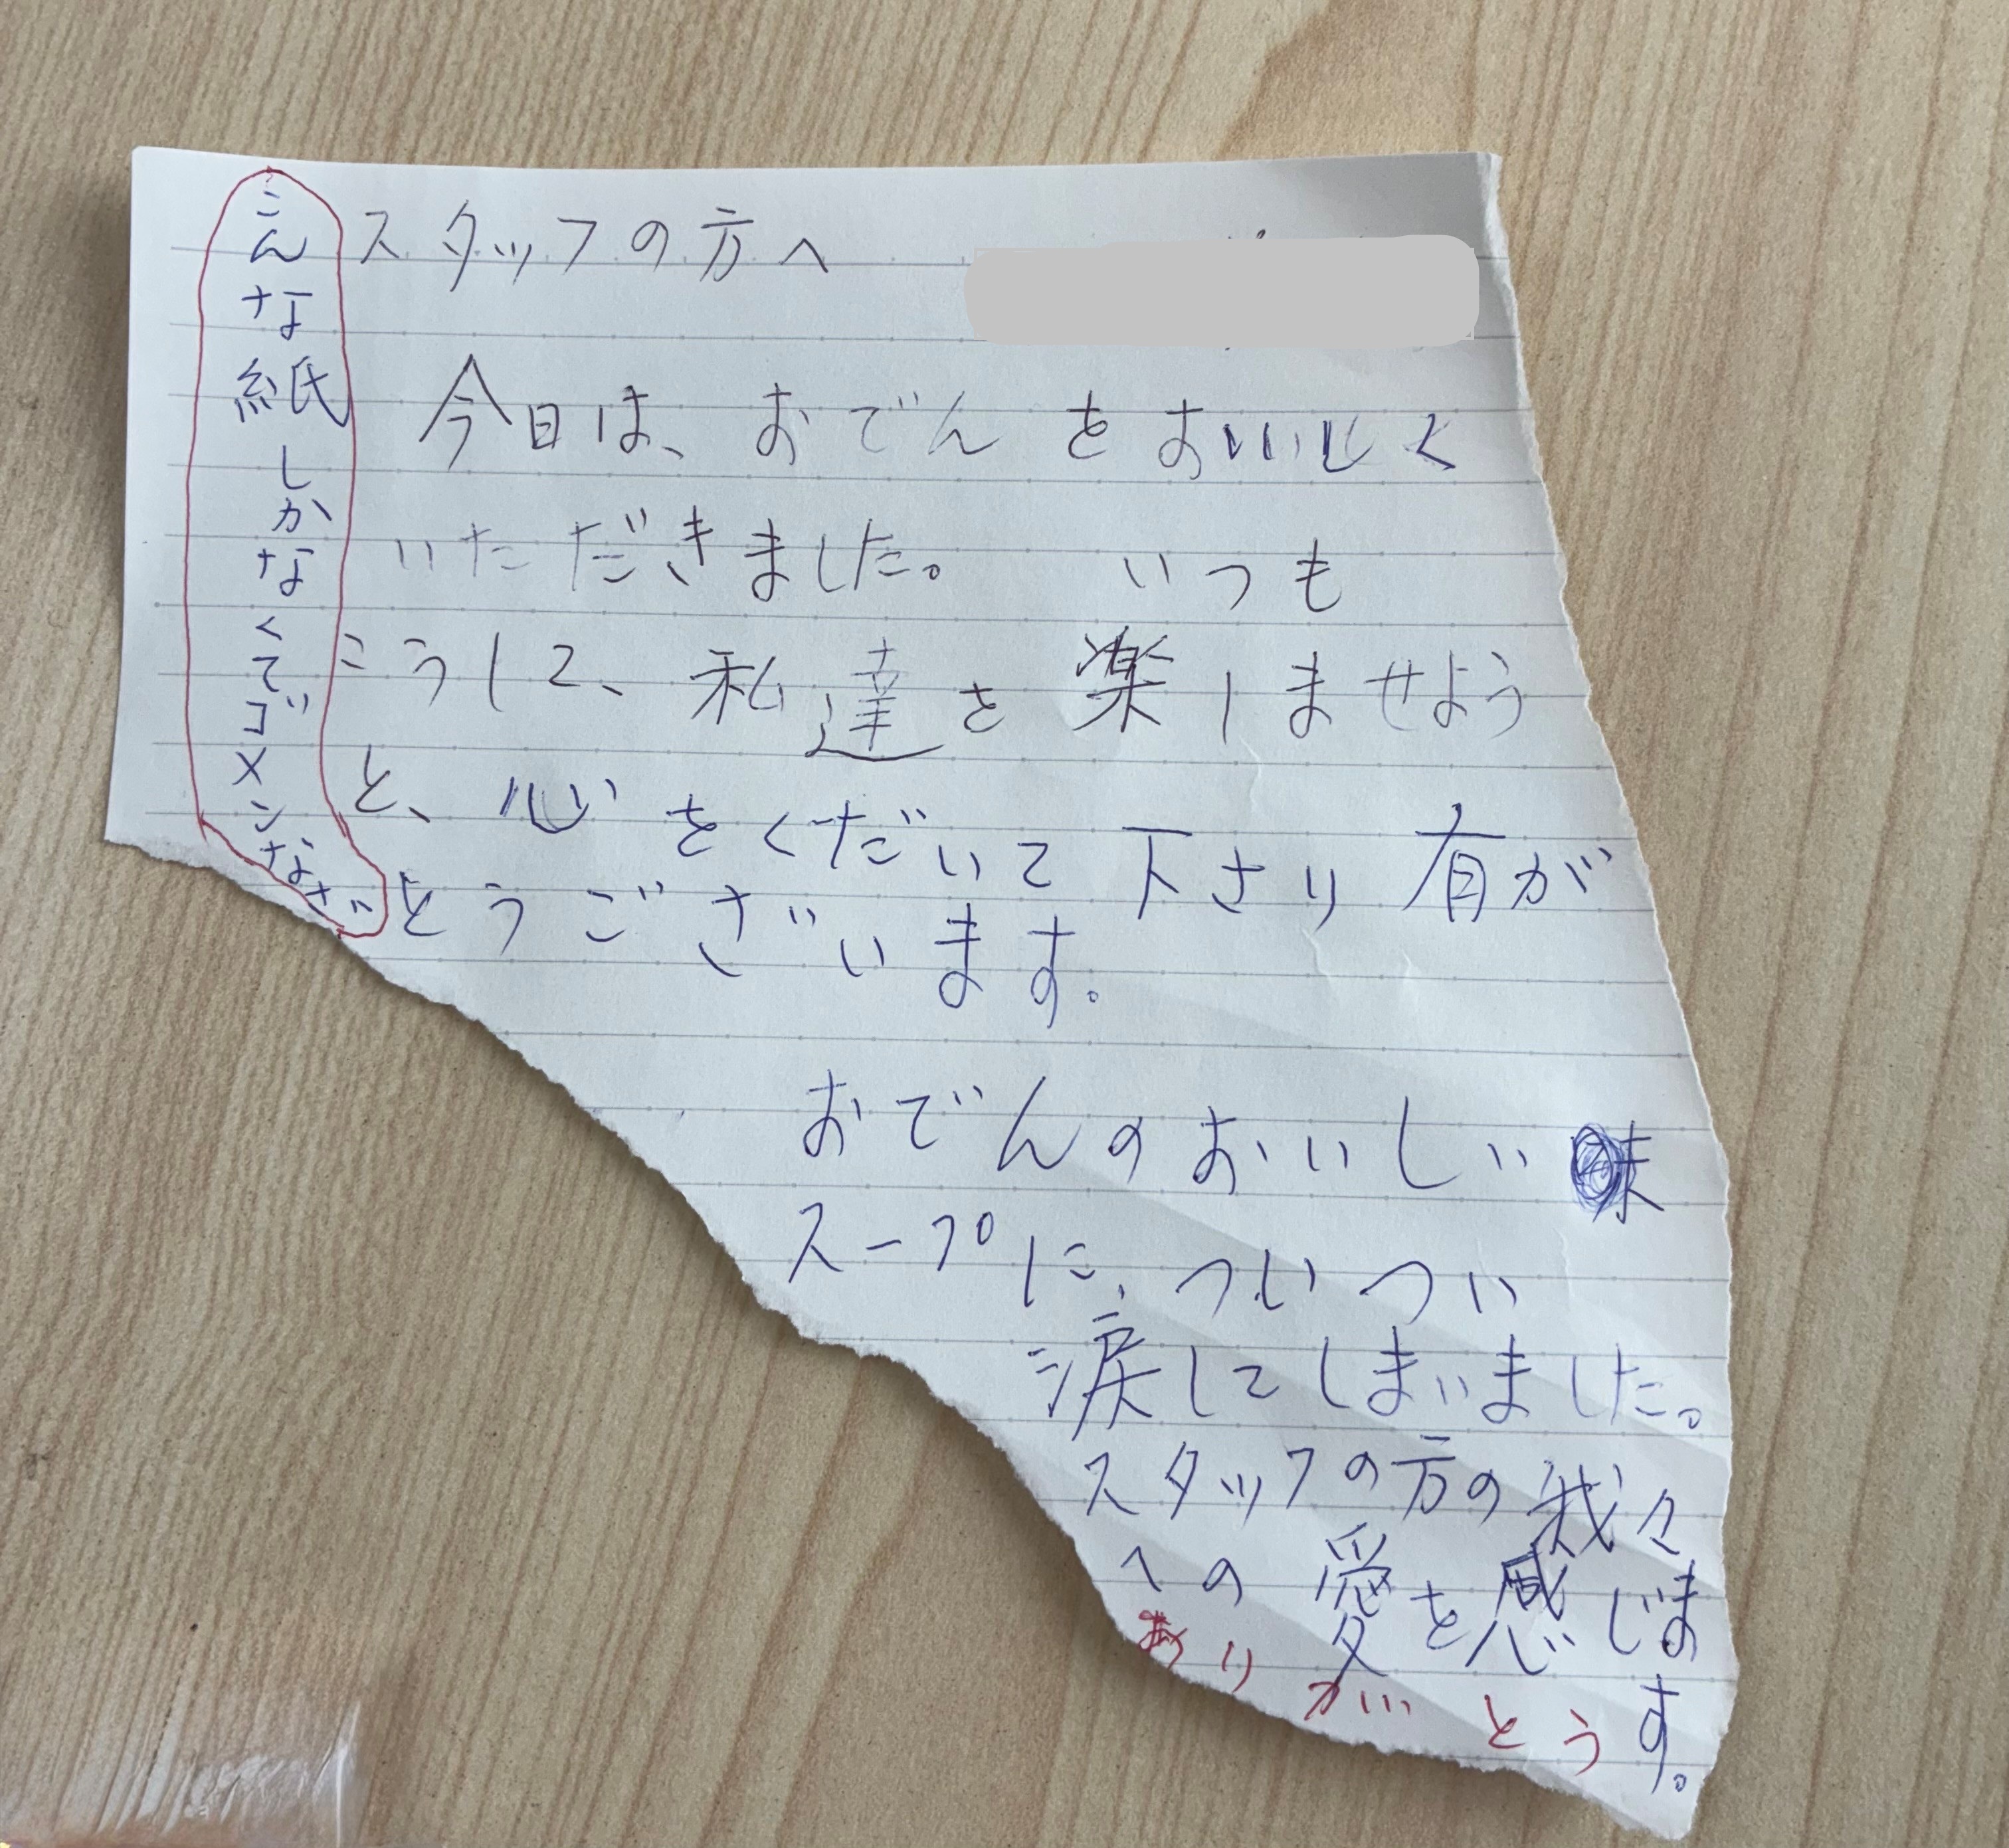 スタッフの方へ
今日は、おでんをおいしく
いただきました。 いつも
こうして、私達を楽しませよう
と、心をくだいて下さり有が
とうございます。
おでんのおいしい味
スープに、ついつい
涙してしまいました。
スタッフの方の我々
への愛を感じま
す。
ありがとう
こんな紙しかなくてゴメンなさい